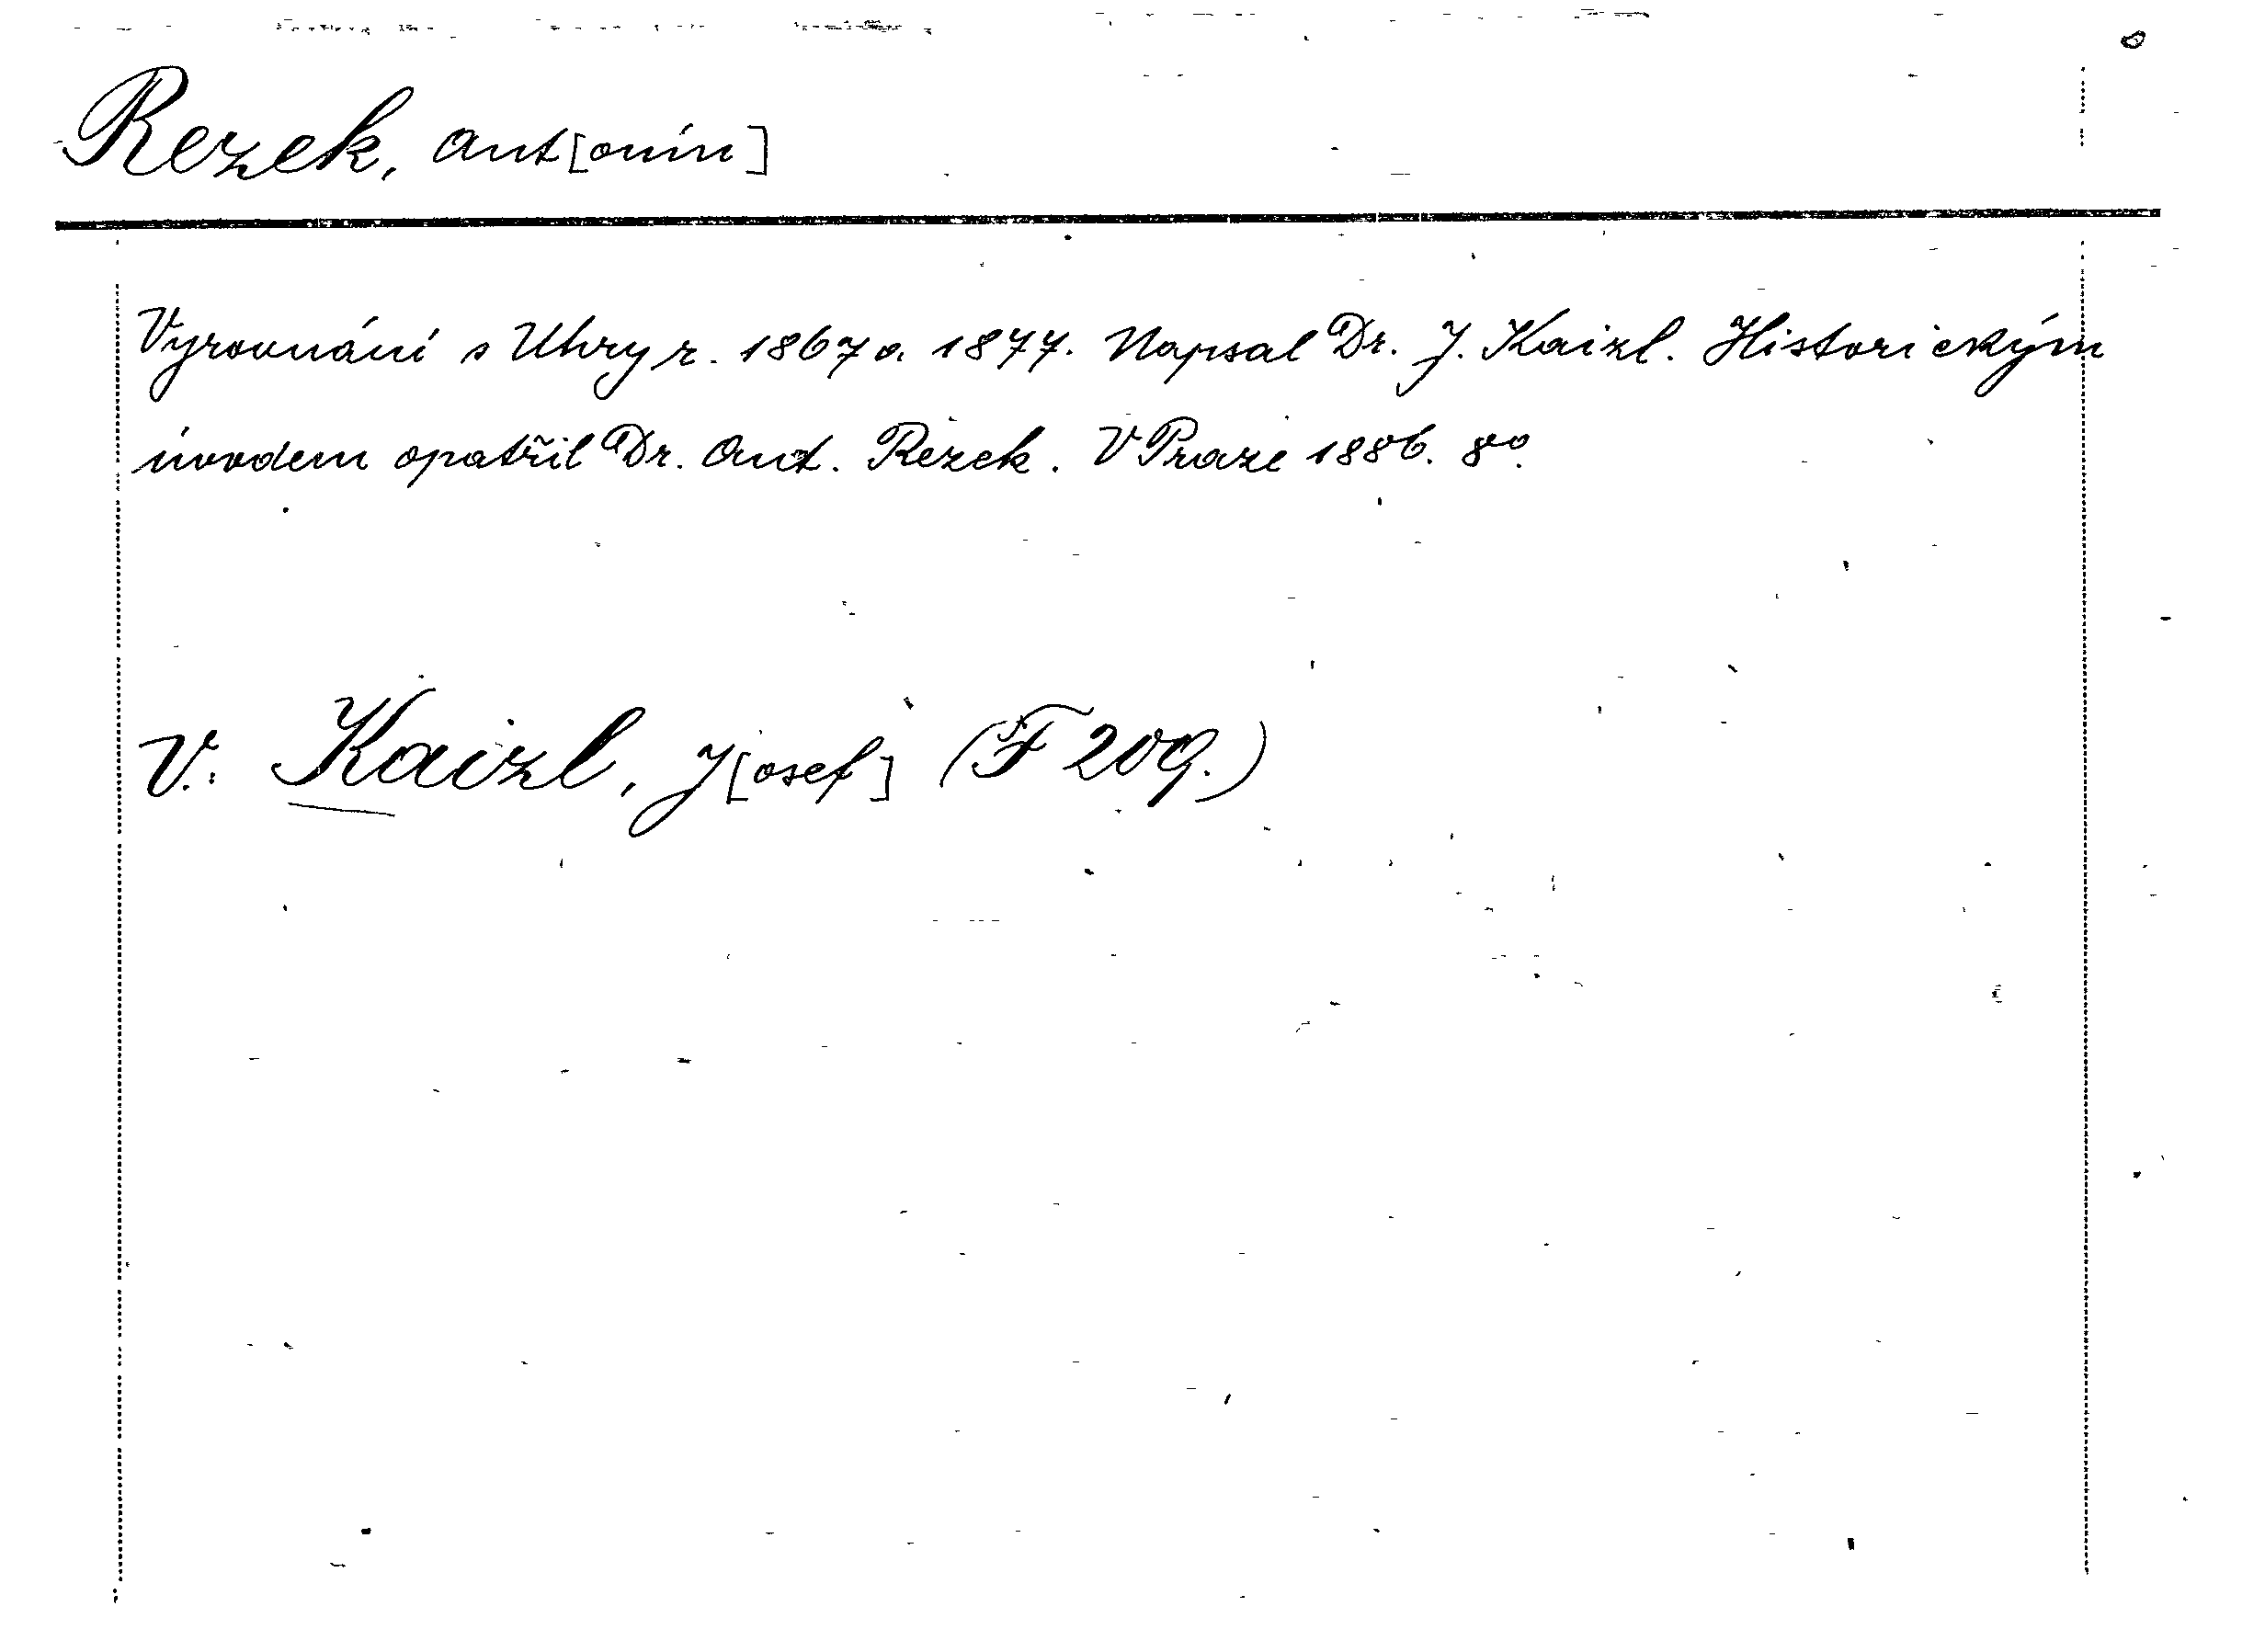 Rezek, Ant[onín]
Vyrovnání s Uhry r. 1867 a 1877. Napsal Dr. J. Kaizl. Historickým
úvodem opatřil Dr. Ant. Rezek. V Praze 1886. 8vo.
V. Kaizl, J[osef] (F 209.)